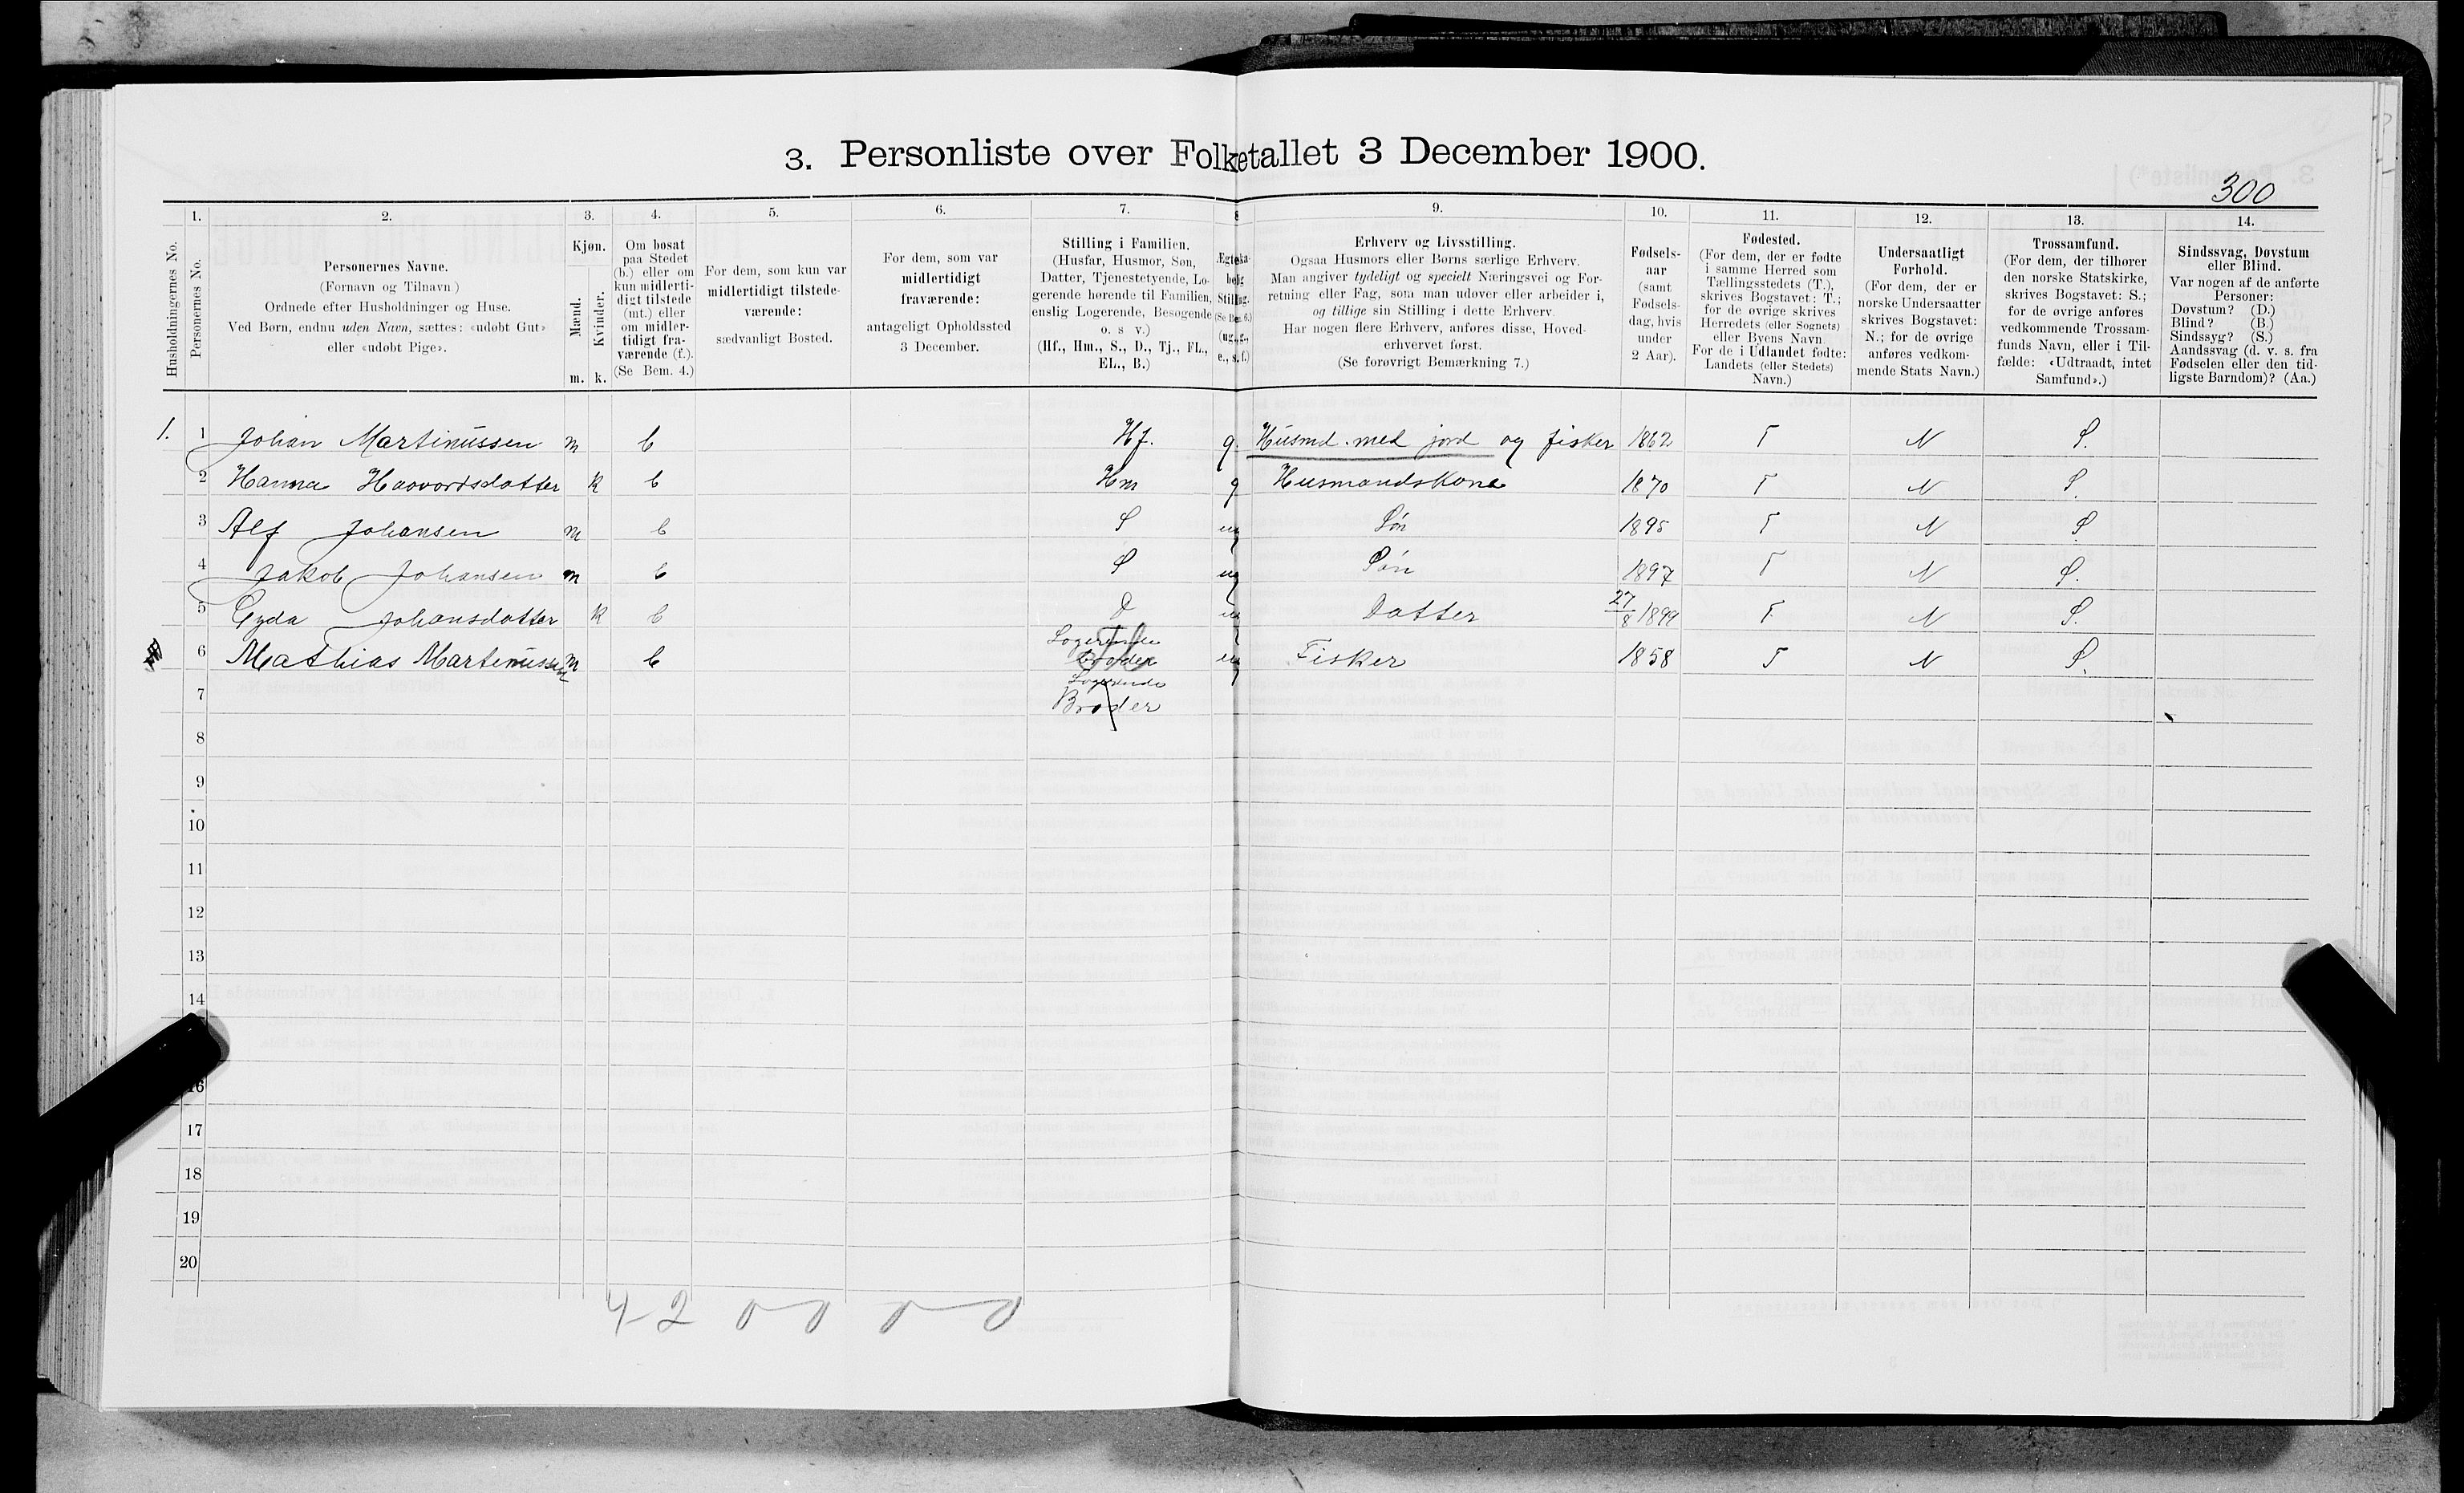 3. Personliste over Folketallet 3 December 1900.
300
1. 2. 3. 4. 5. 6. 7. 8 9. 10. 11. 12. 13. 14.
Husholdningernes No.
Personernes No.
Personernes Navne.
(Fornavn og Tilnavn)
Ordnede efter Husholdninger og Huse.
Ved Børn, endnu uden Navn, sættes: «udøbt Gut»
eller «udøbt Pige».
Kjøn.
Mænd.
Kvinder.
m. k.
Om bosat
paa Stedet
(b.) eller om
kun midlerti-
digt tilstede
(mt.) eller
om midler-
tidigt fra-
værende (f.).
(Se Bem. 4.)
For dem, som kun var
midlertidigt tilstede-
værende:
sædvanligt Bosted.
For dem, som var
midlertidigt
fraværende:
antageligt Opholdssted
3 December.
Stilling i Familien.
(Husfar, Husmor, Søn,
Datter, Tjenestetyende, Lo-
gerende hørende til Familien,
enslig Logerende, Besøgende
o. s v.)
(Hf., Hm., S., D., Tj., FL.,
EL., B.)
Ægteska-
belig
Stilling.
(Se Bem. 6.)
(ug., g.,
e., s., f.)
Erhverv og Livsstilling.
Ogsaa Husmors eller Børns særlige Erhverv.
Man angiver tydeligt og specielt Næringsvei og For-
retning eller Fag, som man udøver eller arbeider i,
og tillige sin Stilling i dette Erhverv.
Har nogen flere Erhverv, anføres disse, Hoved-
erhvervet først.
(Se forøvrigt Bemærkning 7.)
Fødsels-
aar
(samt
Fødsels-
dag, hvis
under
2 Aar).
Fødested.
(For dem, der er fødte
i samme Herred som
Tællingsstedets (T.),
skrives Bogstavet: T.;
for de øvrige skrives
Herredets (eller Sognets)
eller Byens Navn.
For de i Udlandet fødte:
Landets (eller Stedets)
Navn.)
Undersaatligt
Forhold.
(For dem, der er
norske Undersaatter
skrives Bogstavet:
N.; for de øvrige
anføres vedkom-
mende Stats Navn.)
Trossamfund.
(For dem, der tilhører
den norske Statskirke,
skrives Bogstavet: S.;
for de øvrige anføres
vedkommende Trossam-
funds Navn, eller i Til-
fælde: «Udtraadt, intet
Samfund».)
Sindssvag, Døvstum
eller Blind.
Var nogen af de anførte
Personer:
Døvstum? (D.)
Blind? (B.)
Sindssyg? (S.)
Aandssvag (d. v. s. fra
Fødselen eller den tid-
ligste Barndom)? (Aa.)
1. 1 Johan Martinussen m b Hf. g. Husmd. med jord og fisker 1862 T N S.
2 Hanna Haavardsdatter k b Hm g Husmandskone 1870 T N S.
3 Alf Johansen m b S ug Søn 1895 T N S
4 Jakob Johansen m b S ug Søn 1897 T N S.
5 Gyda Johansdatter k b D ug Datter 27/8 1899 T N S.
6 Mathias Martinussen m b Logerende Broder ug Fisker 1858 T N S.
7 Logerende Broder
8
9
10
11
12
13
14
16
17
18
19
20
4-2 0 0 0 0